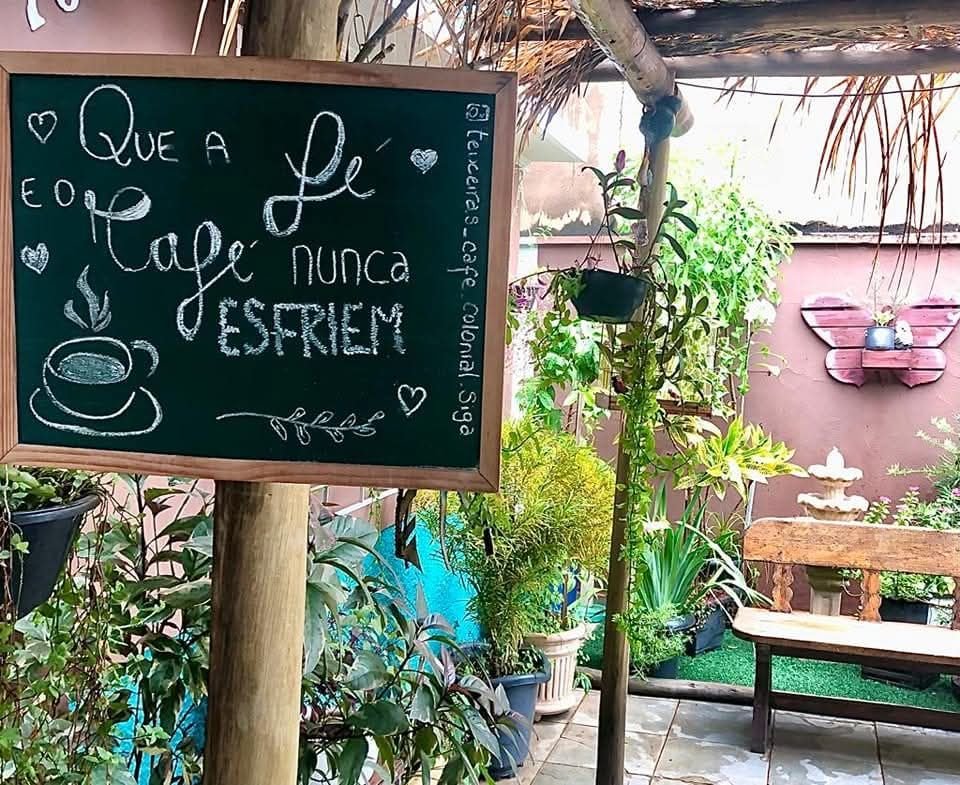 Que a Fé
e o Café nunca
ESFRIEM
teixeiras_cafe_colonial.Siga